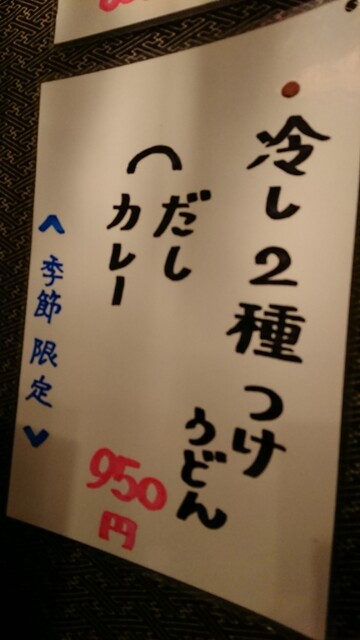 冷し2種つけ
うどん
(だし
カレー
950
円
〈季節限定〉